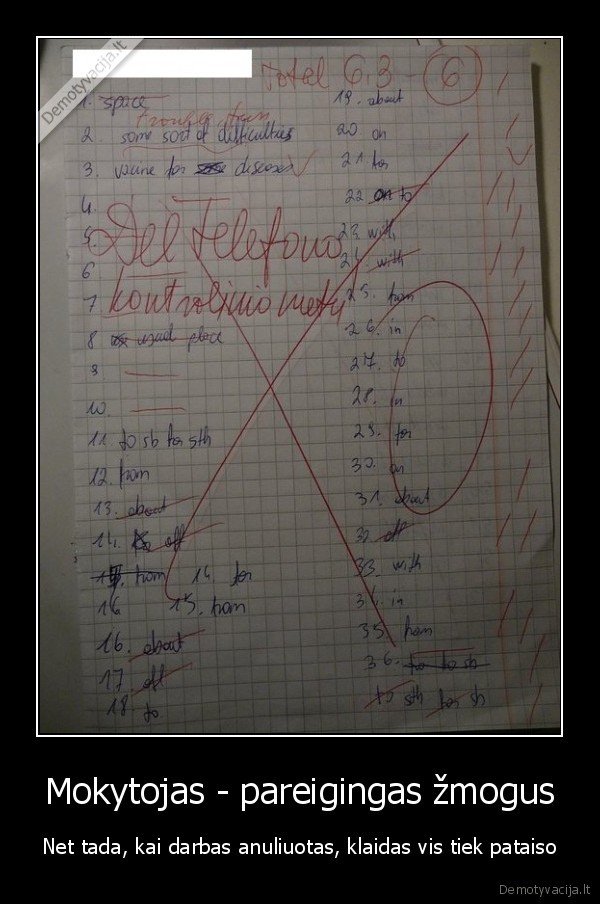 Demotyvacija.lt
Total 63 - 6
1. space
trouble from
2. some sort of difficulties
3. vaccine for diseases
4.
5.
Dėl telefono
6.
7 kontrolinio metu
8 usual place
9
10.
11. to sb for sth
12. from
13. about
14. off
15. from 14. for
16 15. from
16. about
17. off
18. to
19. about
20. on
21. for
22. on to
23. with
24. with
25. from
26. in
27. to
28. in
29. for
30. on
31. about
32. off
33. with
34. in
35. from
36. to to sb
to sth for sb
Mokytojas - pareigingas žmogus
Net tada, kai darbas anuliuotas, klaidas vis tiek pataiso
Demotyvacija.lt